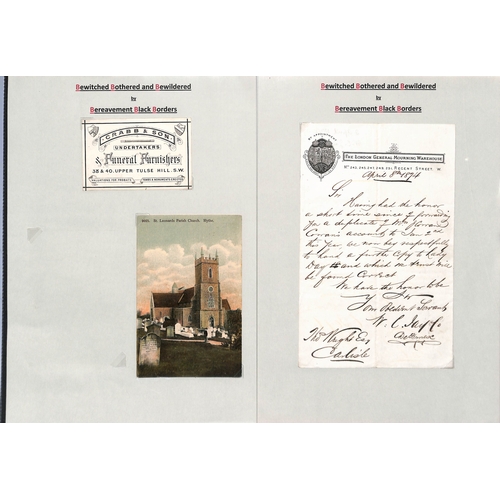 Bewitched Bothered and Bewildered
by
Bereavement Black Borders
CRABB & SON
UNDERTAKERS
& Funeral Furnishers,
38 & 40, UPPER TULSE HILL, S.W.
St. Leonard's Parish Church,
Bewitched Bothered and Bewildered
by
Bereavement Black Borders
BY APPOINTMENT
THE LONDON GENERAL MOURNING WAREHOUSE
REGENT STREET
April 8th 1874
Sir
Having had the honor
a short time since of forwarding
you a duplicate of
account to Jan 2nd
this year, we now beg respectfully
to hand a fourth copy to Lady
Day and which we
be found correct
We have the honor to be
Your Obedient Servants
W. C. Jay &
Carlisle